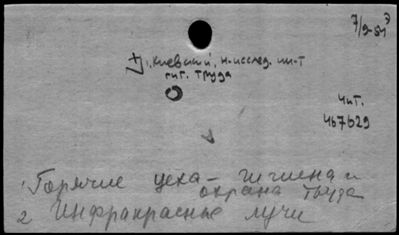 7/9-51 э
1. Киевский н-исслед. ин-т
гиг. труда
Чит.
467629
1. Горячие цеха – гигиена и
охрана труда
2 Инфракрасные лучи